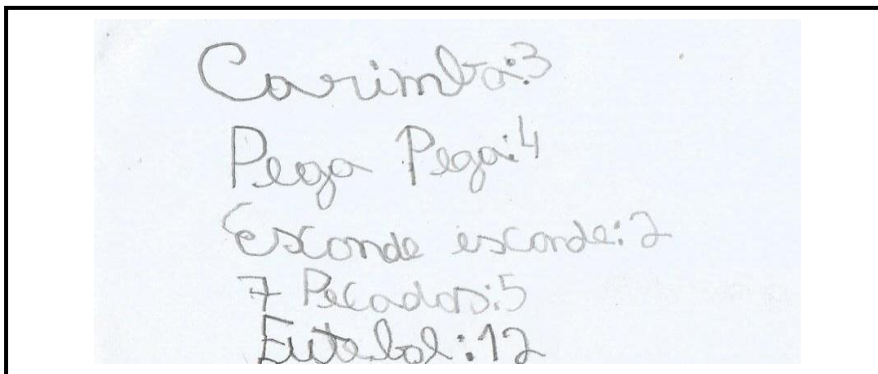 Carimba:3
Pega Pega:4
Esconde esconde:2
7 Pecados:5
Futebol:12